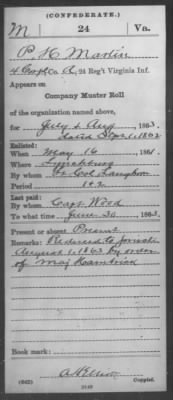 (CONFEDERATE.)
M 24 Va.
P. H. Martin
4 Corpl Co. A, 24 Reg't Virginia Inf.
Appears on
Company Muster Roll
of the organization named above,
for July & Aug, 1863.
dated Sept 1, 1863
Enlisted:
When May 16, 1861.
Where Lynchburg
By whom Lt Col Langhorn
Period 1 & 2
Last paid:
By whom Capt. Wood
To what time June 30, 1863.
Present or absent Present
Remarks: Reduced to private
August 1, 1863 by order
of Maj Hambrick
Book mark:
(642)
Copyist.